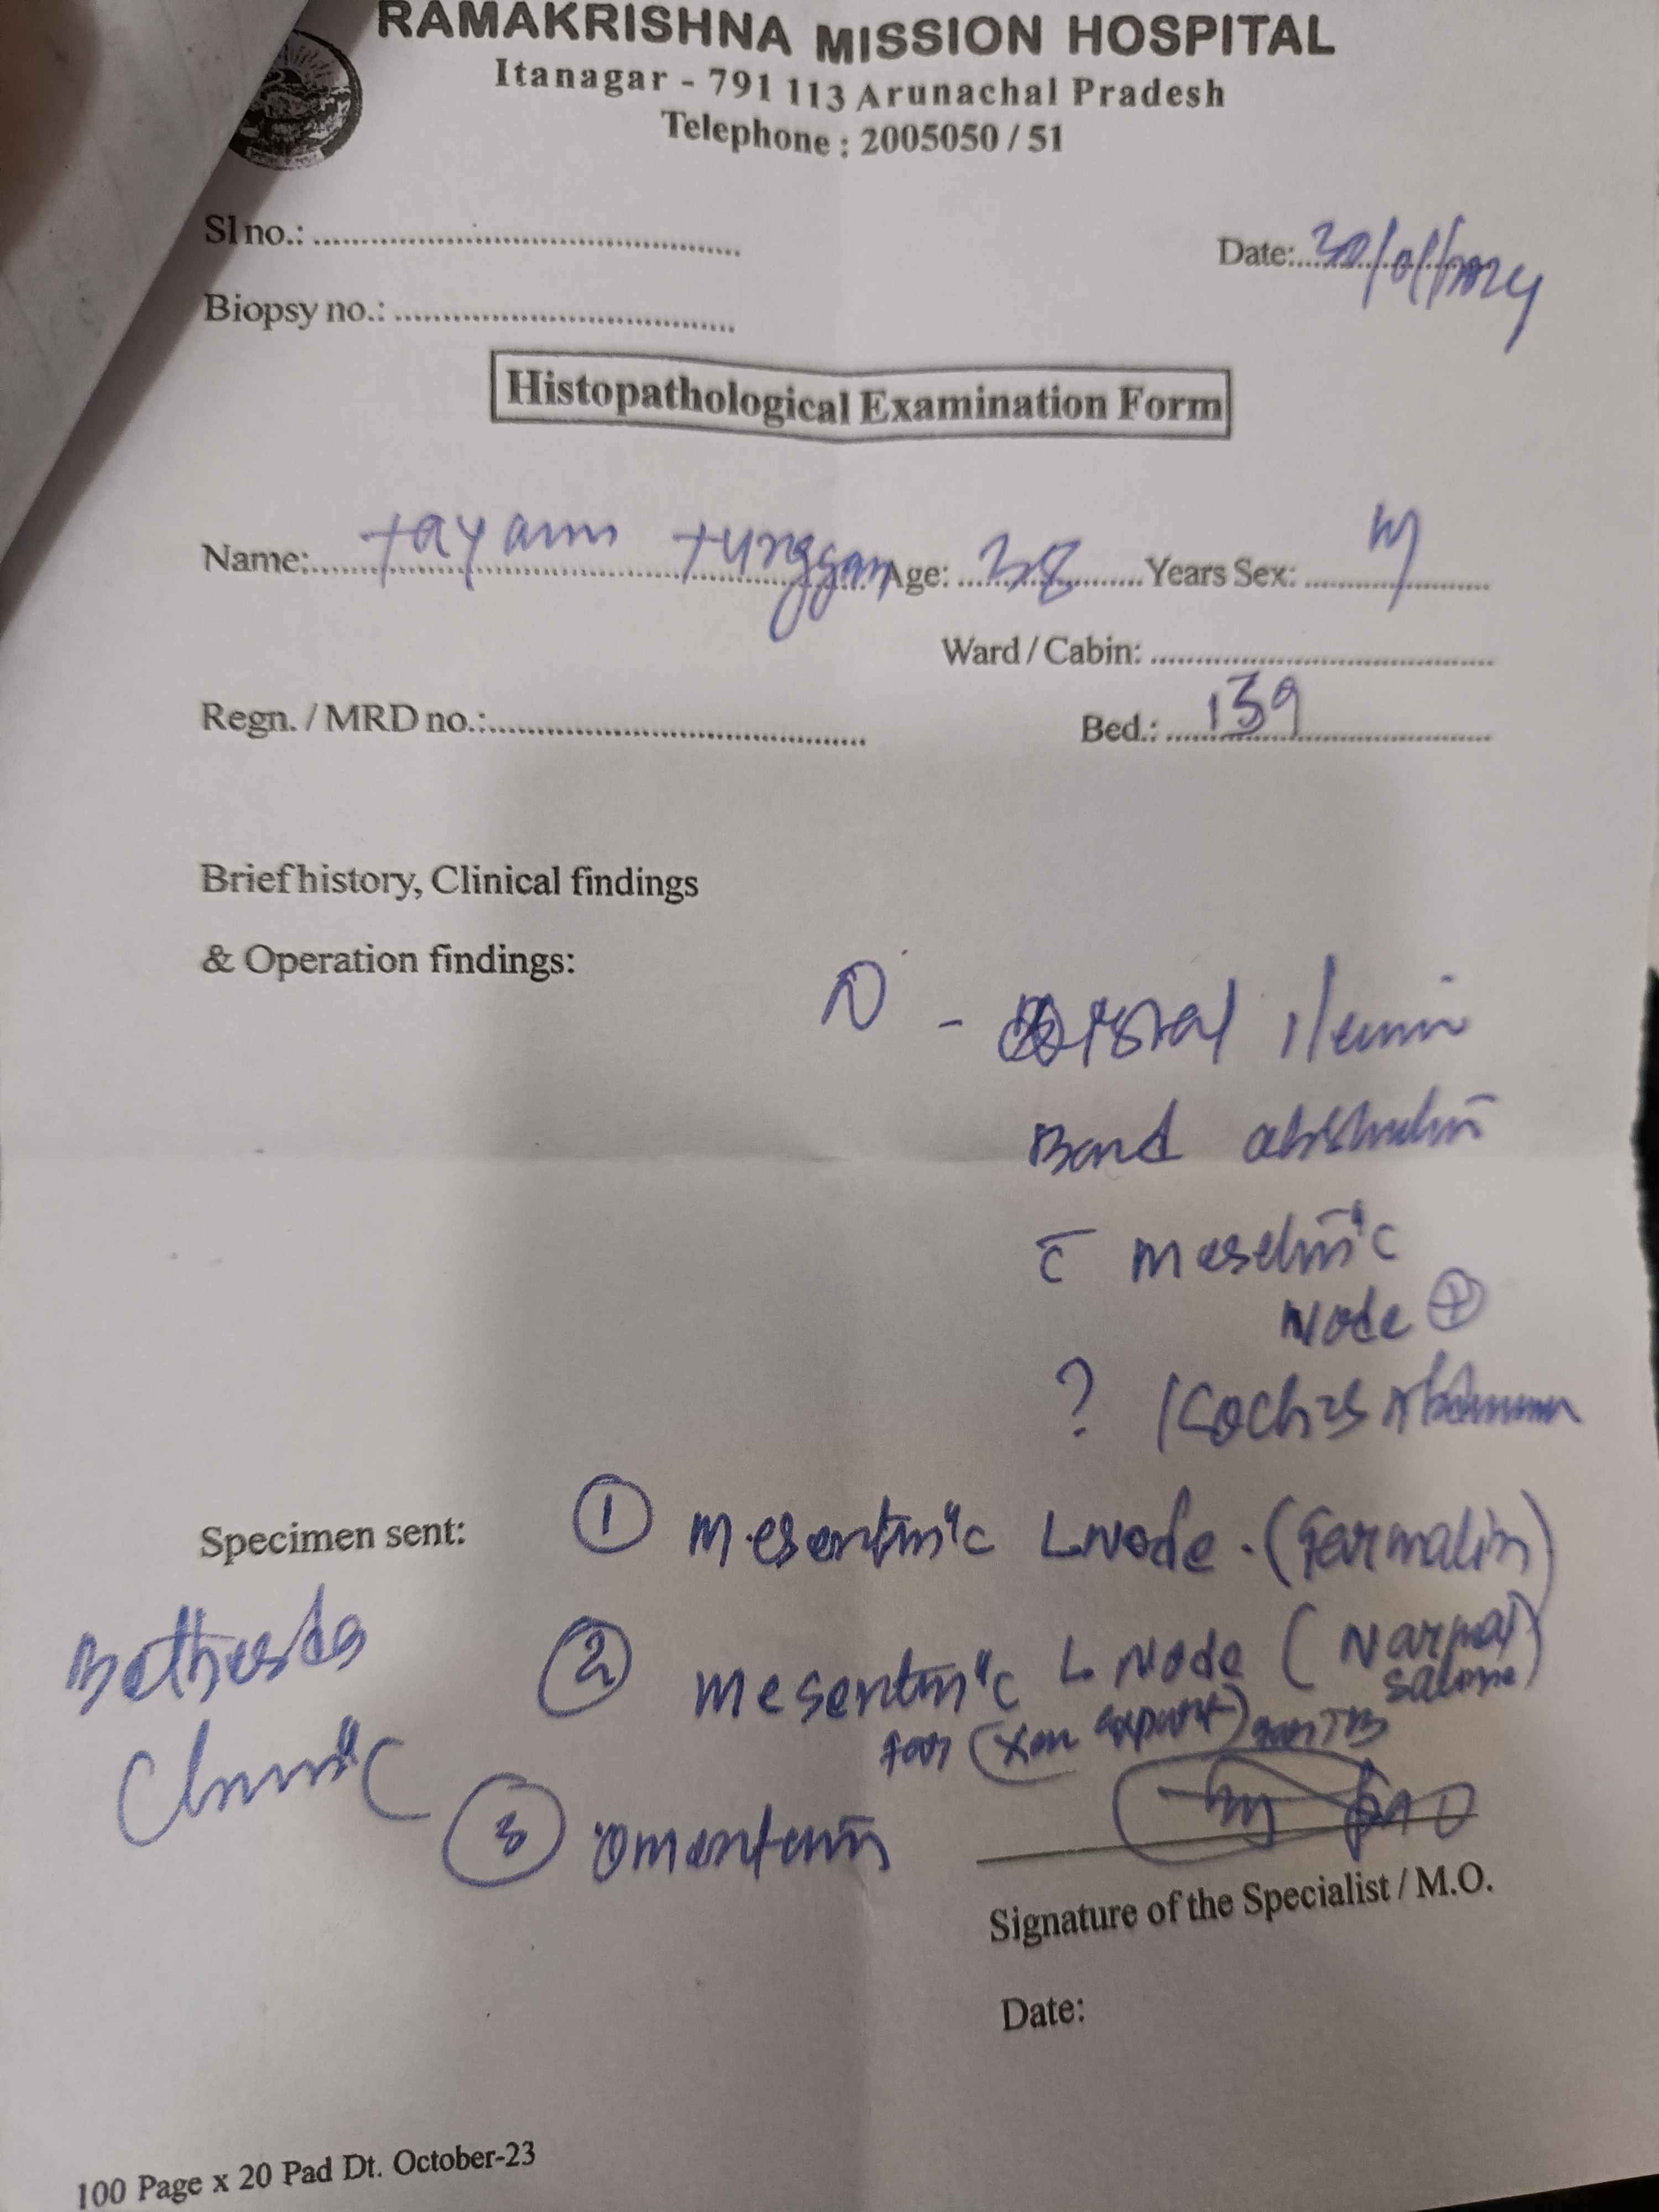 RAMAKRISHNA MISSION HOSPITAL
Itanagar - 791 113 Arunachal Pradesh
Telephone : 2005050 / 51
Sl no.:
Date: 30/01/2024
Biopsy no.:
Histopathological Examination Form
Name: Tayam Tunggam Age: 38 Years Sex: M
Ward / Cabin:
Regn. / MRD no.:
Bed.: 139
Brief history, Clinical findings
& Operation findings:
D - distal ileum
Band obstruction
c̄ mesentric
Node ⊕
? Koch's Abdomen
Specimen sent: ① mesentric L Node. (Formalin)
② mesentric L. Node (Normal saline)
for (Xen expert) for TB
③ omentum
Bethesda
Clinic
Signature of the Specialist / M.O.
Date:
100 Page x 20 Pad Dt. October-23